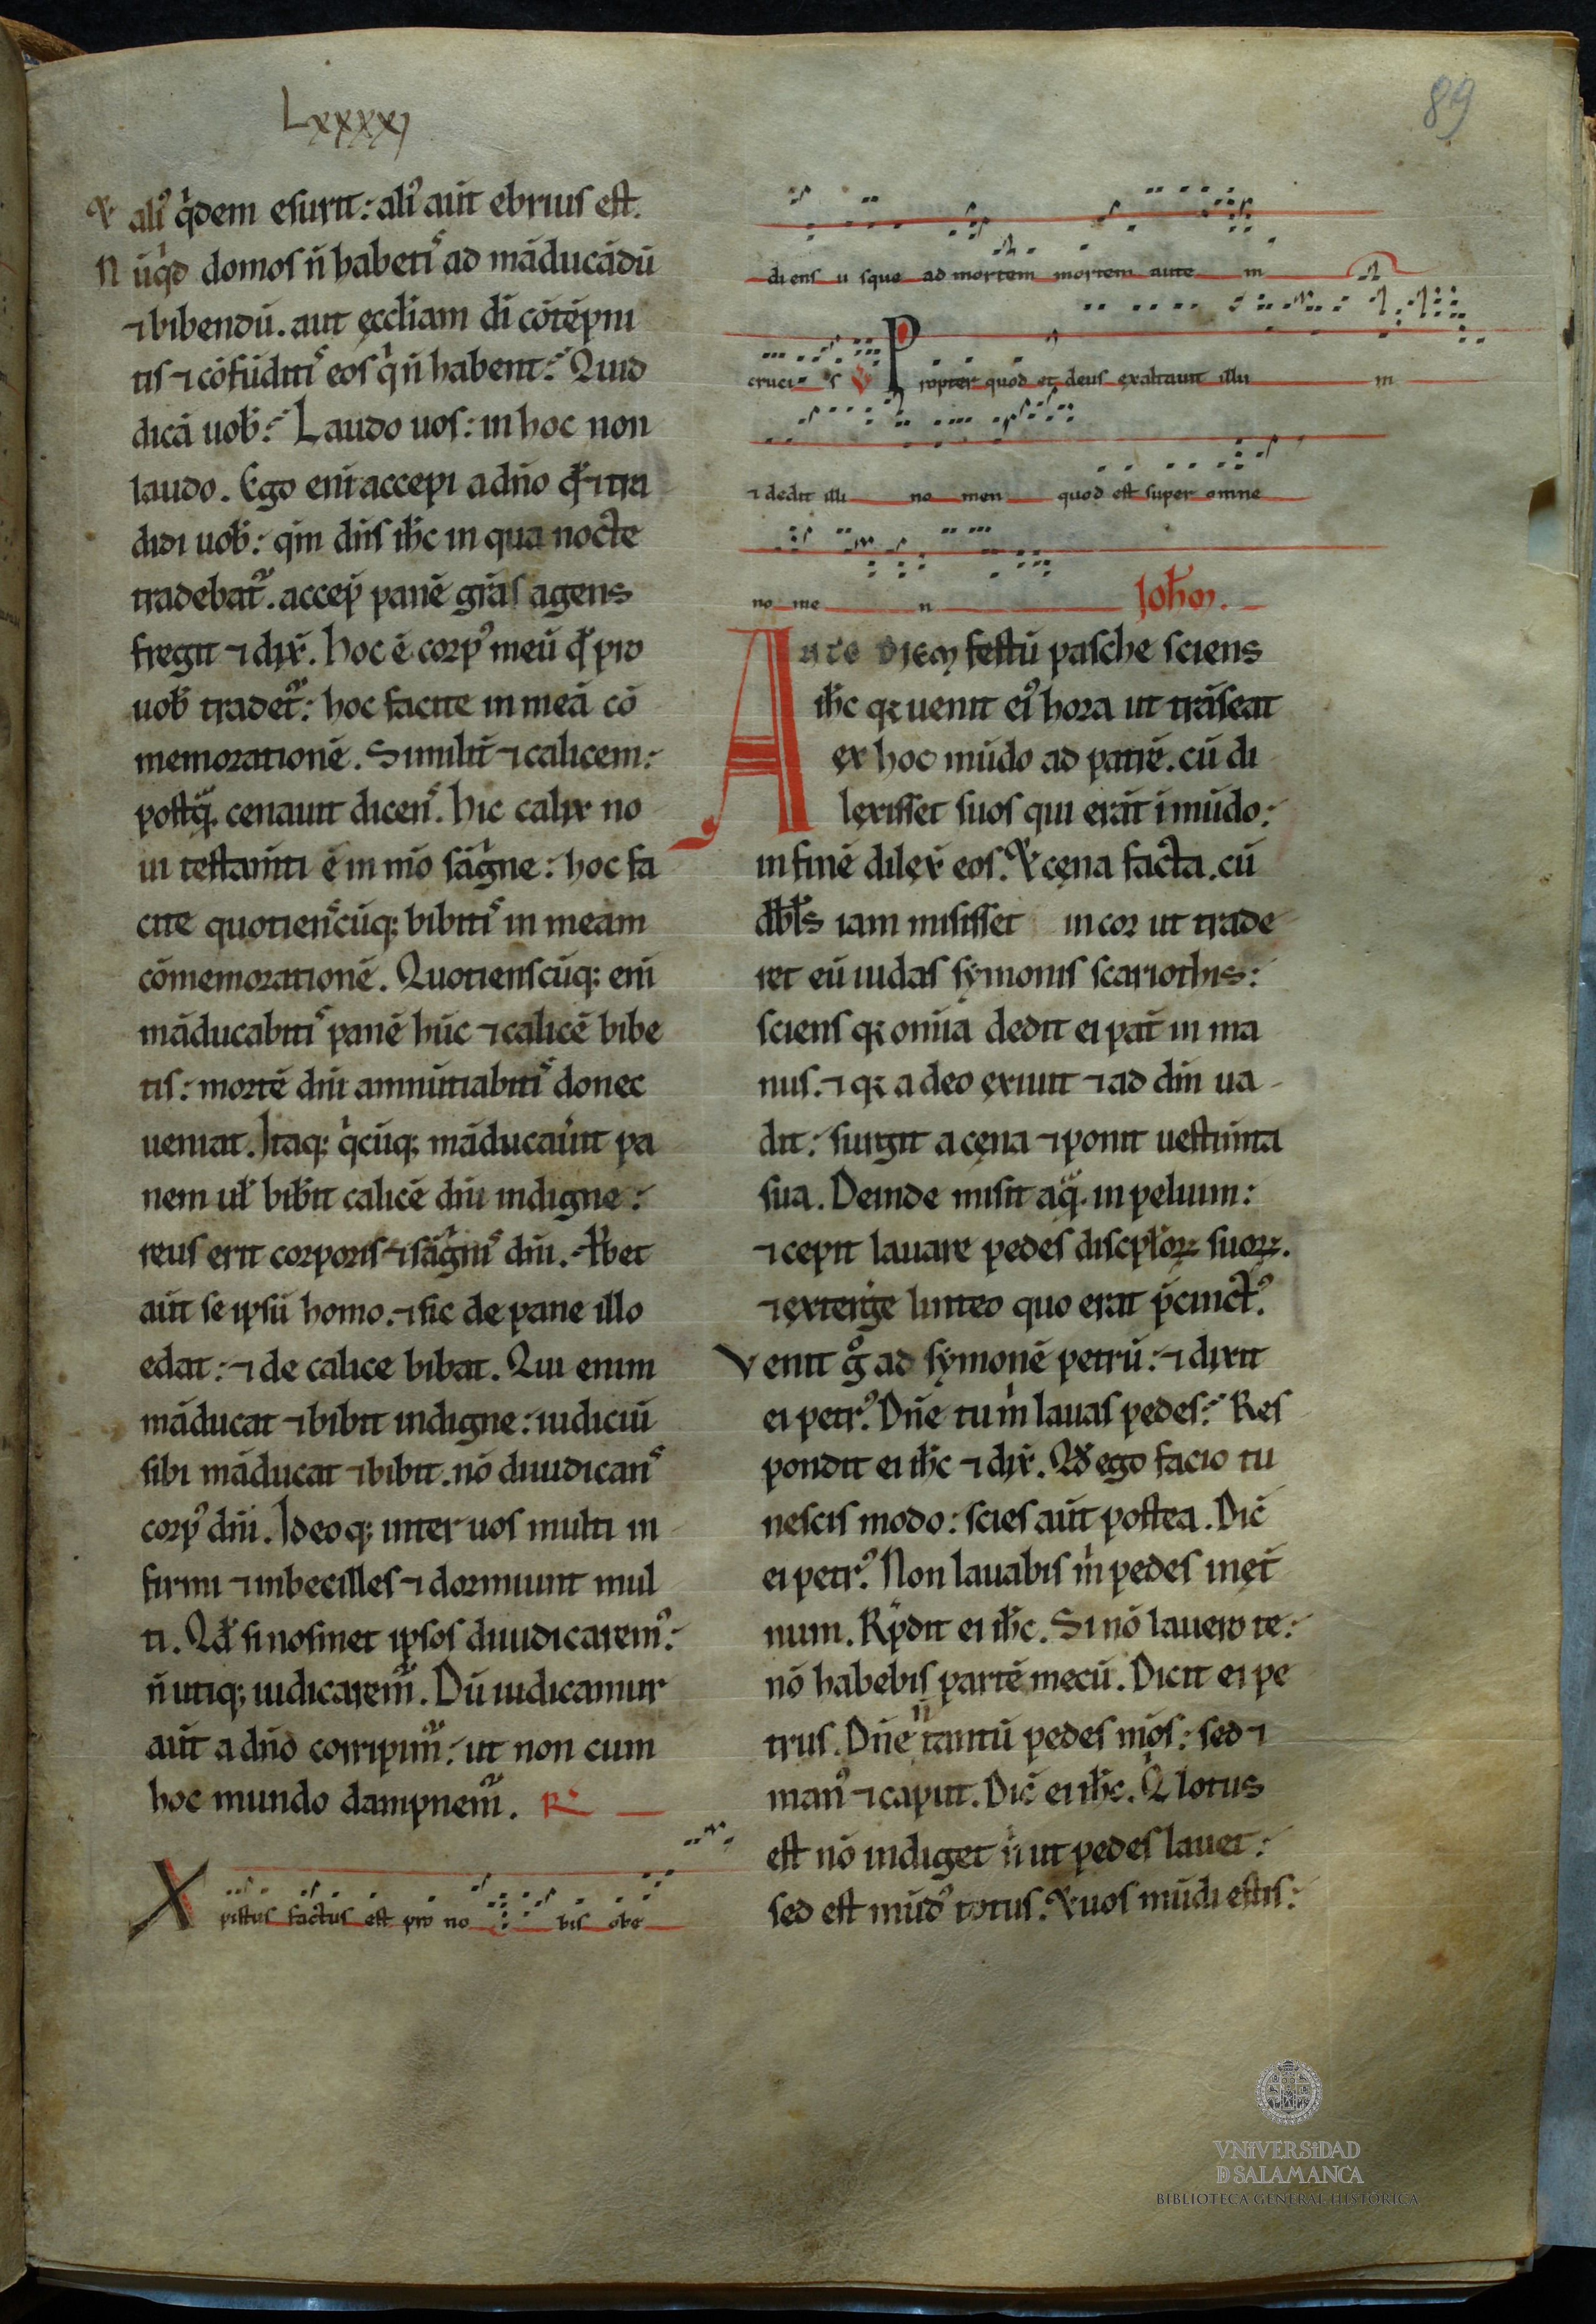 Lxxxxj
89
& aliꝰ qͥdem esurit: aliꝰ aut̄ ebrius est.
Nūqͥd domos n̄ habetiˢ ad māducādū
⁊ bibendū. aut ęccƚiam dī cōtēpni
tis ⁊ cōfūditiˢ eos qͥ n̄ habent? Quid
dicā uoƀ? Laudo uos: in hoc non
laudo. Ego eni accepi a dn̄o qđ ⁊ tra
didi uoƀ: qm̄ dn̄s ih̄c in qua nocte
tradebat᷑. accep̄ panē grās agens
fregit ⁊ dix̄. hoc ē corpꝰ meū qđ pro
uoƀ tradet᷑: hoc facite in meā cō
memorationē. Similit̄ ⁊ calicem:
postqᷓ cenauit dicenˢ. hic calix no
ui testam̄ti ē in mō sāgͥne: hoc fa
cite quotienˢcūq; bibitiˢ in meam
cōmemorationē. Quotienscūq; eni
māducabitiˢ panē hūc ⁊ calicē bibe
tis: mortē dn̄i annūtiabitiˢ donec
ueniat. Itaq; qͥcūq; māducau̾it pa
nem uƚ biƀit calicē dn̄i indigne:
reus erit corporis ⁊ sāgͥniˢ dn̄i. Pƀet
aut̄ se ipsū homo. ⁊ sic de pane illo
edat: ⁊ de calice bibat. Qui enim
māducat ⁊ bibit indigne: iudiciū
sibi māducat ⁊ bibit. nō diiudicanˢ
corpꝰ dn̄i. Ideoq; inter uos multi in
firmi ⁊ inbecilles ⁊ dormiunt mul
ti. Qđ si nosmet ipsos diiudicaremꝰ:
n̄ utiq; iudicarem᷑. Dū iudicamur
aut̄ a dn̄o corripim᷑: ut non cum
hoc mundo dampnem᷑. R̷
Xpistus factus est pro no bis obe
diens u sque ad mortem mortem aute m
cruci s V Propter quod et deus exaltauit illu m
⁊ dedit illi no men quod est super omne
no me n Ioh̄m.
Ante diem festū pasche sciens
ih̄c qꝛ uenit eiꝰ hora ut trāseat
ex hoc mūdo ad patrē. cū di
lexisset suos qui erāt ī mūdo:
in finē dilex̄ eos. & cęna facta. cū
dƀƚs iam misisset in cor ut trade
ret eū iudas sẏmonis scariothis:
sciens qꝛ omīa dedit ei pat̄ in ma
nus. ⁊ qꝛ a deo exiuit ⁊ ad dm̄ ua
dit: surgit a cęna ⁊ ponit uestim̄ta
sua. Deinde misit aqᷓ in peluim:
⁊ cepit lauare pedes discipƚoꝝ suoꝝ.
⁊ exterge linteo quo erat p̄cinctꝰ.
Venit gͦ ad sẏmonē petrū: ⁊ dixit
ei petrꝰ. Dn̄e tu mͥ lauas pedes? Res
pondit ei ih̄c ⁊ dix̄. Qđ ego facio tu
nescis modo: scies aut̄ postea. Dic̄
ei petrꝰ. Non lauabis mͥ pedes in ęt̄
num. Rp̄dit ei ih̄c. Si nō lauero te:
nō habebis partē mecū. Dicit ei pe
trus. Dn̄e n̄ tantū pedes mōs: sed ⁊
manꝰ ⁊ caput. Dic̄ ei ih̄c. Qͥ lotus
est nō indiget n̄ ut pedes lauet:
sed est mūdꝰ totus. & uos mūdi estis:
VNIVERSIDAD
D SALAMANCA
BIBLIOTECA GENERAL HISTÓRICA